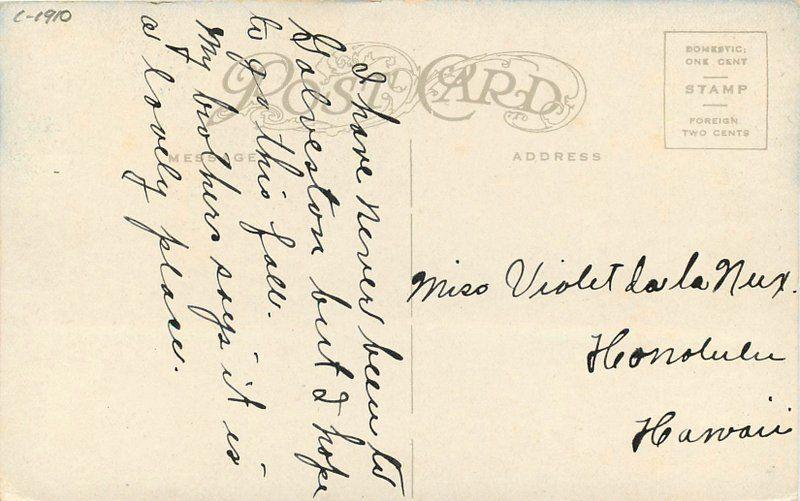 c-1910
POST CARD
DOMESTIC:
ONE CENT
STAMP
FOREIGN
TWO CENTS
MESSAGE
ADDRESS
I have never been to
Galveston but I hope
to go this fall.
My brother says it is
a lovely place.
Miss Violet da la Nux.
Honolulu
Hawaii